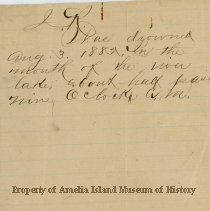 J. R.
was drowned
Aug. 3, 1882, in the
mouth of the river
lake, about half past
nine O'clock A.M.
Property of Amelia Island Museum of History